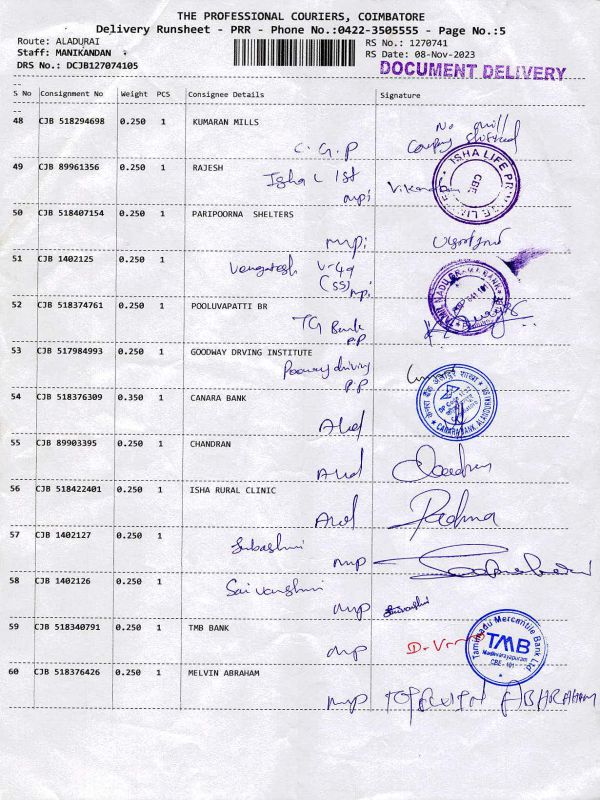 THE PROFESSIONAL COURIERS, COIMBATORE
Delivery Runsheet - PRR - Phone No.:0422-3505555 - Page No.:5
Route: ALADURAI
RS No.: 1270741
Staff: MANIKANDAN
RS Date: 08-Nov-2023
DRS No.: DCJB127074105
DOCUMENT DELIVERY
S No Consignment No Weight PCS Consignee Details Signature
48 CJB 518294698 0.250 1 KUMARAN MILLS No mill
C.G.P Company shifted
49 CJB 89961356 0.250 1 RAJESH
Isha L 1st
mpi
ISHA LIFE PRIVATE LIMITED
CBE
50 CJB 518407154 0.250 1 PARIPOORNA SHELTERS
mpi
51 CJB 1402125 0.250 1
V-49
(SS)
mpi
52 CJB 518374761 0.250 1 POOLUVAPATTI BR
TG Bank
P.P
53 CJB 517984993 0.250 1 GOODWAY DRVING INSTITUTE
driving
P.P
54 CJB 518376309 0.350 1 CANARA BANK
Alnd
CANARA BANK
55 CJB 89903395 0.250 1 CHANDRAN
Alnd
56 CJB 518422401 0.250 1 ISHA RURAL CLINIC
Alnd Padma
57 CJB 1402127 0.250 1
Subashini
mp
58 CJB 1402126 0.250 1
Sai varshni
mp
59 CJB 518340791 0.250 1 TMB BANK
mp
Tamilnadu Mercantile Bank Ltd
TMB
Madhvarayapuram
CBE - 101
60 CJB 518376426 0.250 1 MELVIN ABRAHAM
mp ABHRAHAM